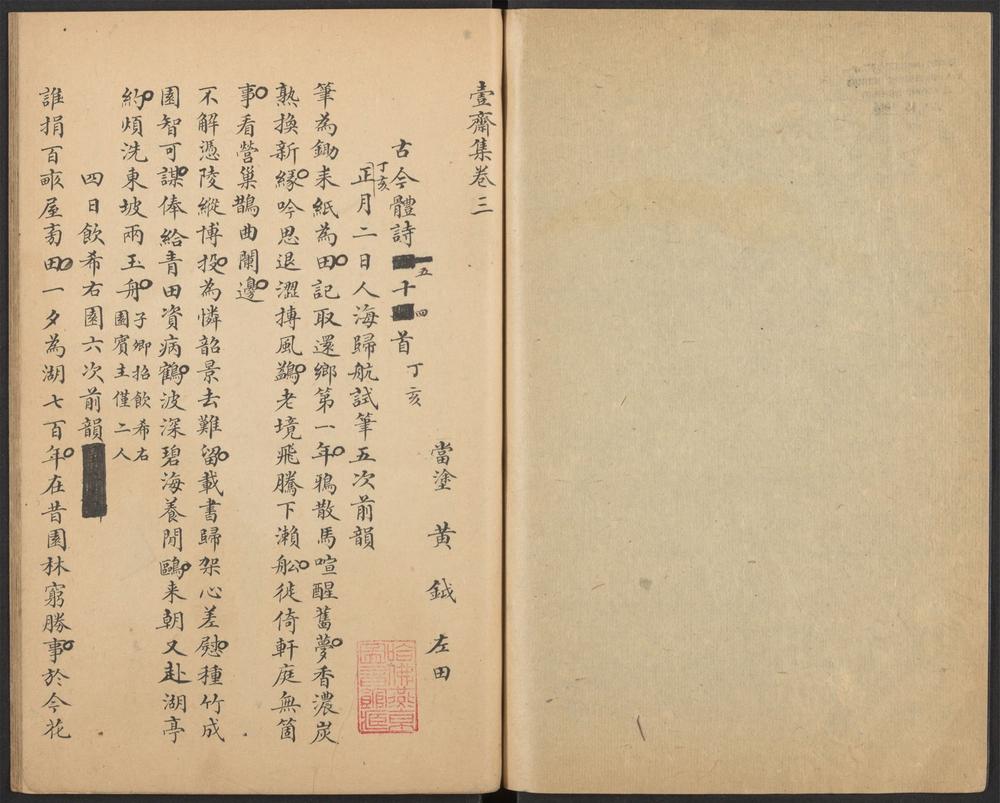 壹齋集卷三
當塗 黃 鉞 左田
古今體詩五十四首 丁亥
丁亥
正月二日人海歸航試筆五次前韻
筆為鋤耒紙為田記取還鄉第一年鴉散馬喧醒舊夢香濃炭
熟換新緣吟思退澀搏風鷁老境飛騰下瀨船徙倚軒庭無箇
事看營巢鵲曲闌邊
不解憑陵縱博投為憐韶景去難留載書歸架心差慰種竹成
園智可謀俸給青田資病鶴波深碧海養閒鷗来朝又赴湖亭
約煩洗東坡兩玉舟子卿招飲希右
園賓主僅二人
四日飲希右園六次前韻
誰捐百畝屋剪田一夕為湖七百年在昔園林窮勝事於今花
哈佛燕京
圖書館